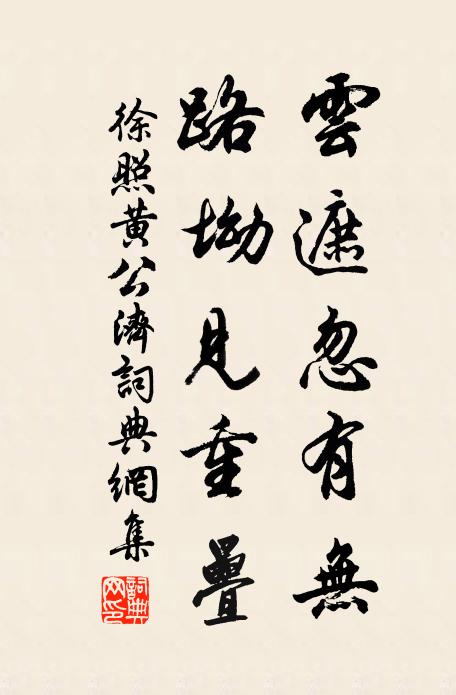 雲遮忽有無
路坳見重疊
徐照黃公濟詞典網集
詞典网印